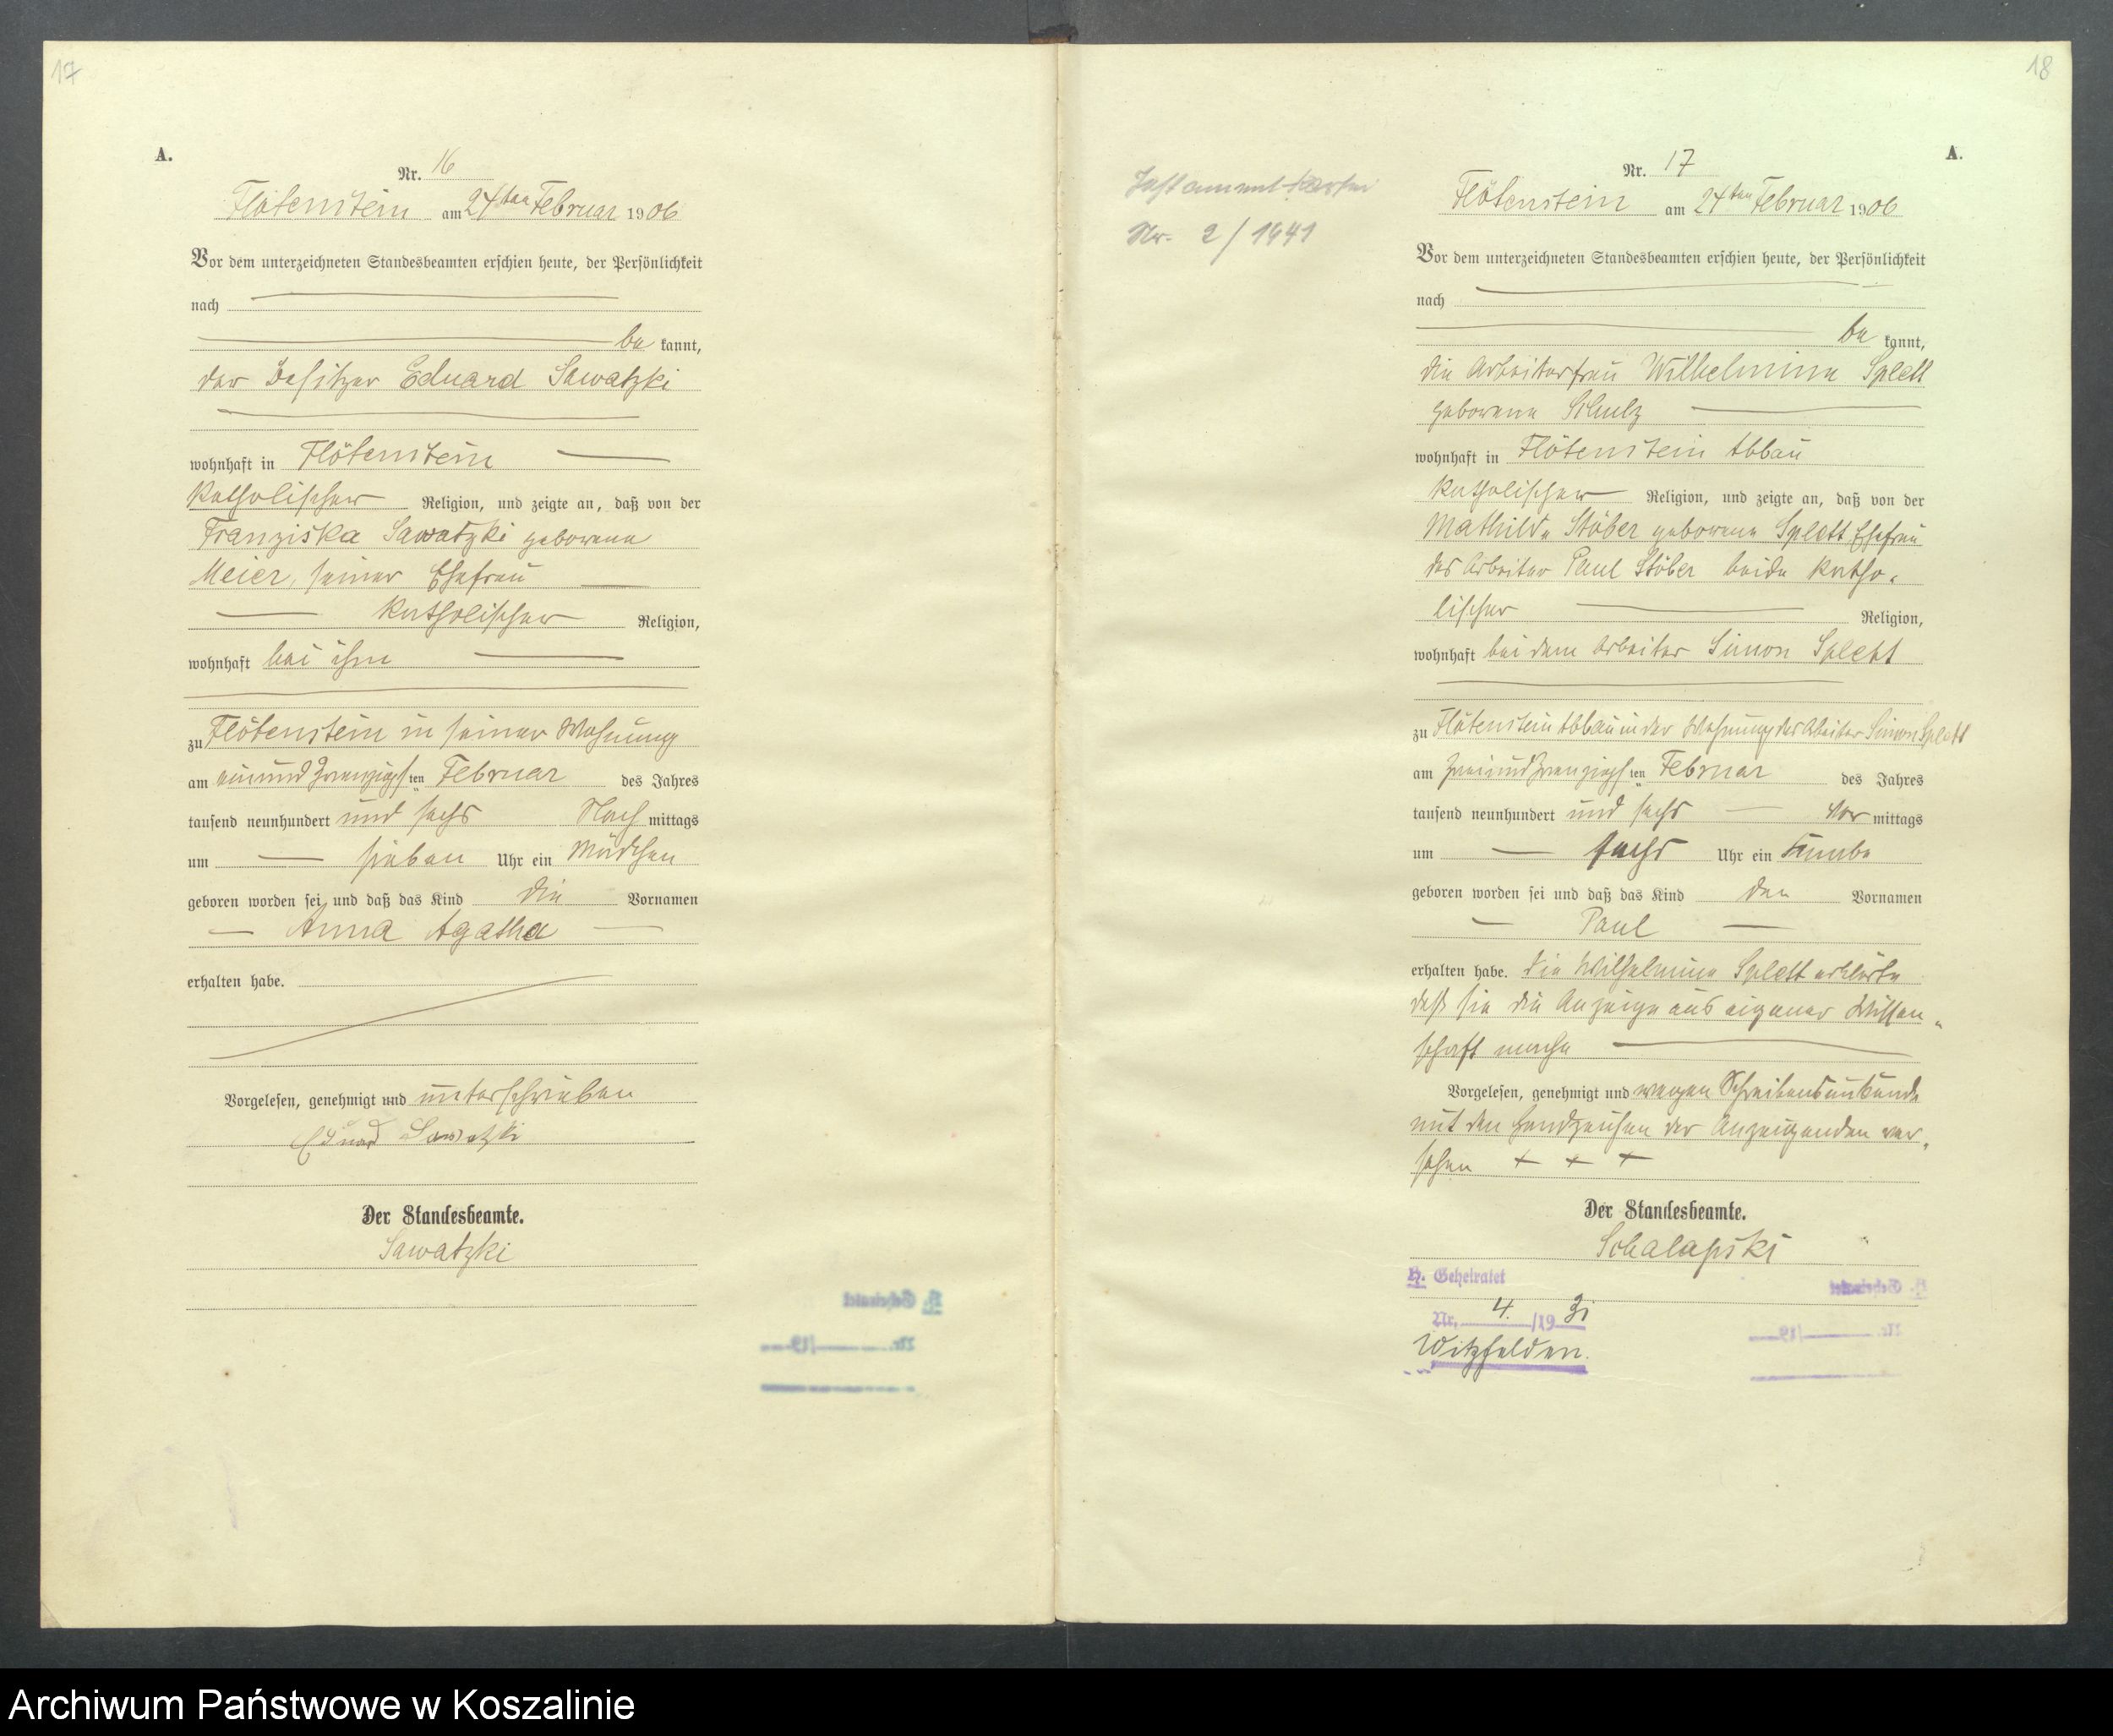 17
A.
Nr. 16
Flötenstein am 24ten Februar 1906
Vor dem unterzeichneten Standesbeamten erschien heute, der Persönlichkeit
nach
be kannt,
der Besitzer Eduard Sawatzki
wohnhaft in Flötenstein
katholischer Religion, und zeigte an, daß von der
Franziska Sawatzki geborene
Meier, seiner Ehefrau
katholischer Religion,
wohnhaft bei ihm
zu Flötenstein in seiner Wohnung
am einundzwanzigsten Februar des Jahres
tausend neunhundert und sechs Nach mittags
um sieben Uhr ein Mädchen
geboren worden sei und daß das Kind die Vornamen
Anna Agatha
erhalten habe.
Vorgelesen, genehmigt und unterschrieben
Eduard Sawatzki
Der Standesbeamte.
Sawatzki
18
A.
Nr. 2/1941
Nr. 17
Flötenstein am 24ten Februar 1906
Vor dem unterzeichneten Standesbeamten erschien heute, der Persönlichkeit
nach
be kannt,
die Arbeiterfrau Wilhelmine Splett
geborene Schulz
wohnhaft in Flötenstein Abbau
katholischer Religion, und zeigte an, daß von der
Mathilde Stöber geborene Splett, Ehefrau
des Arbeiter Paul Stöber beide katho-
lischer Religion,
wohnhaft bei dem Arbeiter Simon Splett
zu Flötenstein Abbau in der Wohnung des Arbeiter Simon Splett
am zweiundzwanzigsten Februar des Jahres
tausend neunhundert und sechs Vor mittags
um sechs Uhr ein Knabe
geboren worden sei und daß das Kind den Vornamen
Paul
erhalten habe. Die Wilhelmine Splett erklärte
daß sie die Anzeige aus eigener Wissen-
schaft mache
Vorgelesen, genehmigt und wegen Schreibensunkunde
mit den Handzeichen der Anzeigenden ver-
sehen + + +
Der Standesbeamte.
H. Geheiratet
Nr. 4. /19 31
Witzfelden.
Archiwum Państwowe w Koszalinie